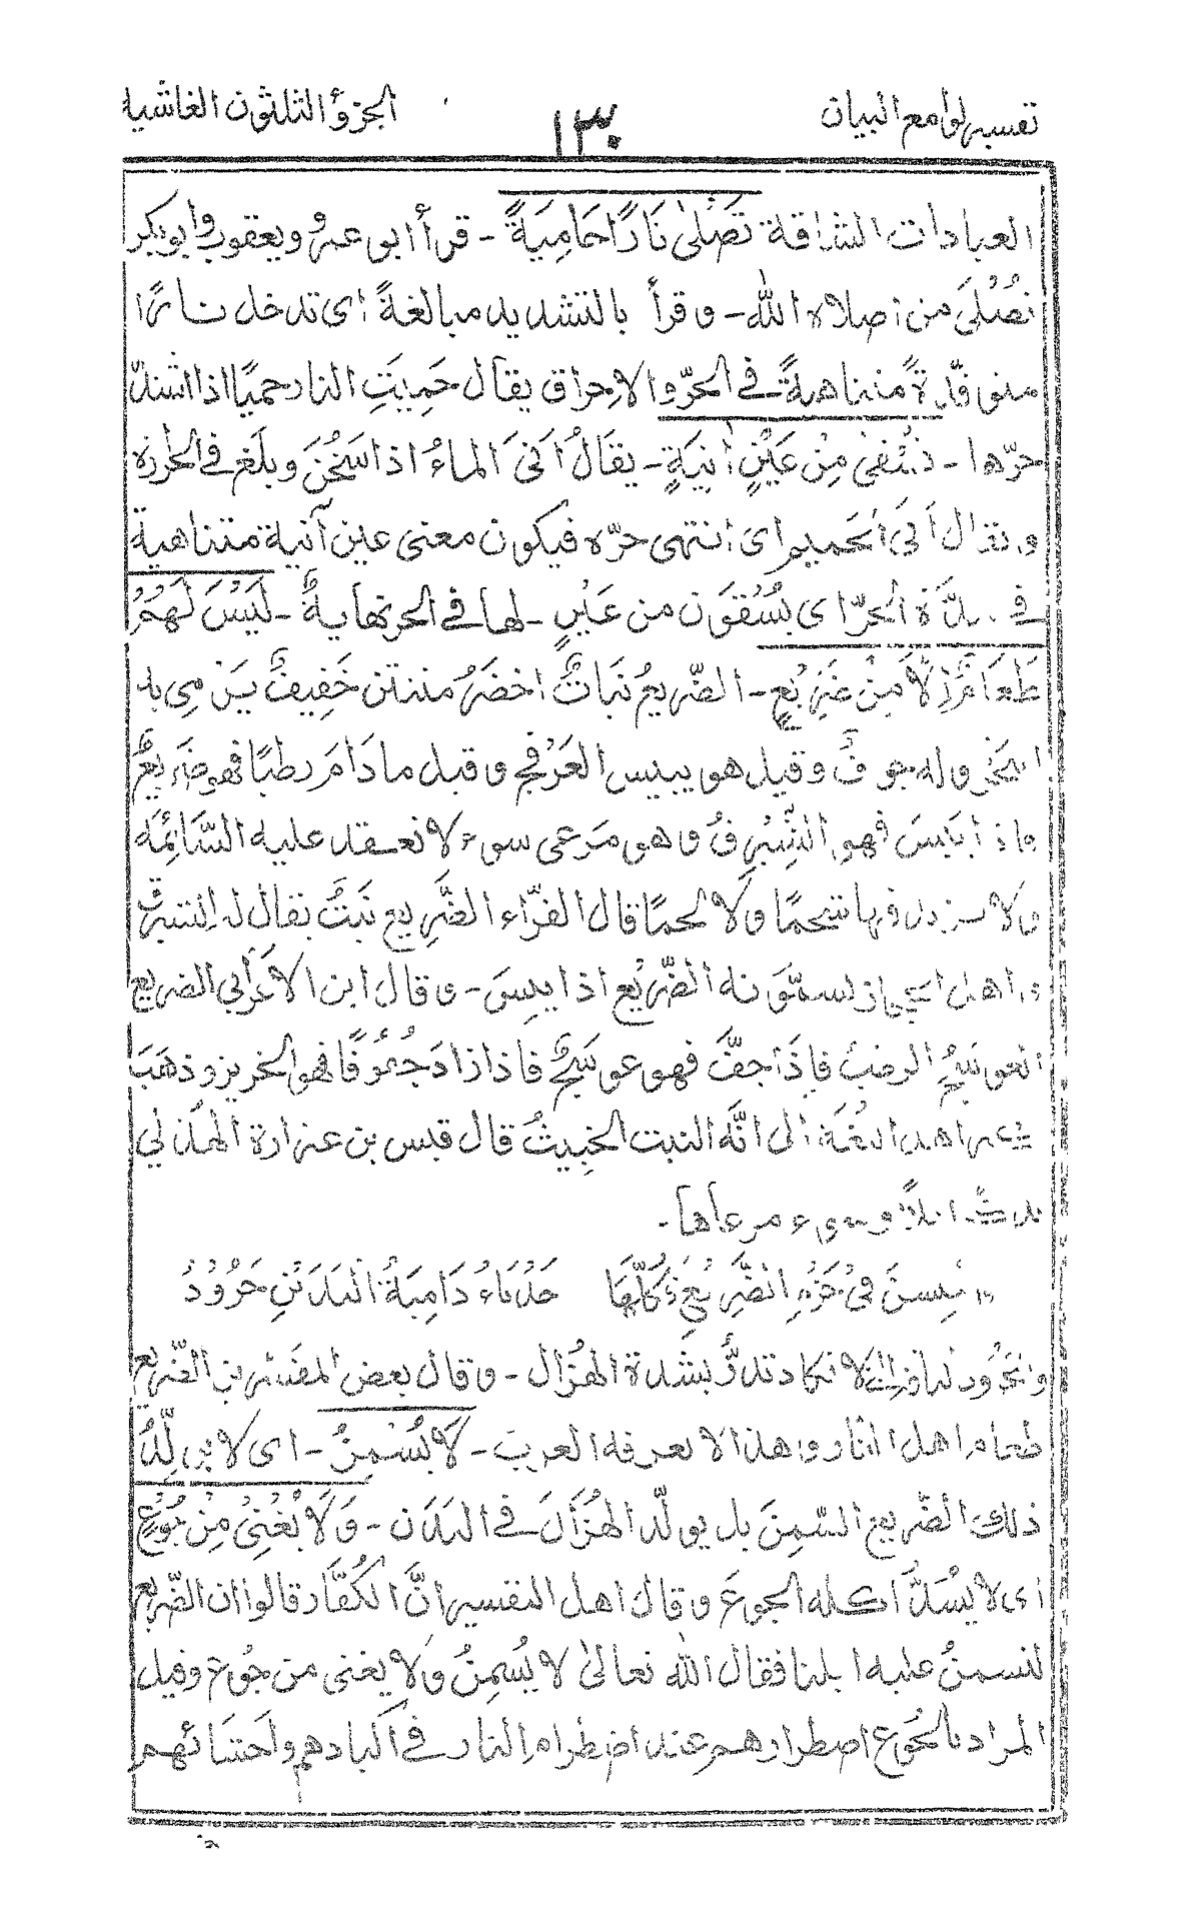 تفسير لوامع البيان
١٣٠
الجزؤ الثلثون الغاشية
العبادات الشاقة تَصْلىٰ نَارًا حَامِيَةً - قرأ ابو عمرو ويعقوب وابوبكر
تُصْلىَ من اصلاه الله - وقرأ بالتشديد مبالغةً اى تدخل نارًا
متوقّدةً متناهيةً في الحرّ والاحراق يقال حَمِيَتِ النار حميًا اذا اشتدّ
حرّها - تُسْقىٰ مِنْ عَيْنٍ اٰنِيَةٍ - يقَالُ اَنىَ الماءُ اذا سَخُنَ وبلَغ في الحرارة
ويقال اَنىَ الحميم اى انتهى حرّه فيكون معنى عين آنية متناهية
في شدّة الحرّ اى يُسْقَون من عَيْنٍ - لها في الحر نهايةٌ - لَيْسَ لَهُمْ
طَعَامٌ اِلَّا مِنْ ضَرِيْعٍ - الضّريعُ نَبَاتٌ اخضَرُ منتن خَفِيفٌ يَرْمِى به
البَحْر وله جوفٌ وقيل هو يبيس العَرْفَجِ وقيل ما دَامَ رطبًا فهو ضَرِيعٌ
واذا يَبِسَ فهو الشِّبْرِقُ وهو مَرعى سوء لا تعقد عليه السَّائِمَة
ولا فيها شحمًا ولا لحمًا قال الفرّاء الضَّرِيع نَبَتٌ يقال له الشبرق
واهل الحجاز يسمّونه الضّرِيْع اذا يبِسَ - وقال ابن الاعرَابي الضريع
العوسج الرطب فإذَا جفَّ فهو عوسَجٌ فاذا زاد جُفوفًا فهو الخريز وذهَبَ
اهل اللغة الى انَّه النبت الخبِيثُ قال قيس بن عيزارة الهذلي
ابلًا وسوء مرعاها -
وَحُبِسْنَ فِىْ هَزْمِ الضَّرِيْعِ فَكُلُّهَا حَدْبَاءُ دَامِيَةُ الْيَدَيْنِ حَرُوْدُ
لا تكاد تدرُّ بشدة الهُزال - وقال بعض المفسّرين الضّريع
طعام اهل النار وهذا لا يعرفه العرب - لَا يُسْمِنُ - اى لا يولّدُ
ذلك الضّريع السّمِنَ بل يولّد الهُزَالَ في البَدَن - وَلَا يُغْنِىْ مِنْ جُوْعٍ
اى لا يَسُدُّ اكله الجوعَ وقال اهل التفسير انَّ الكُفَّار قالوا ان الضّريع
لتسمنُ عليه ابلنا فقال الله تعالىٰ لا يُسْمِنُ وَلا يغنى من جُوع وقيل
المراد بالجُوع اضطرارهم عند اضطرام النار في اكبادهم واحتشائهم